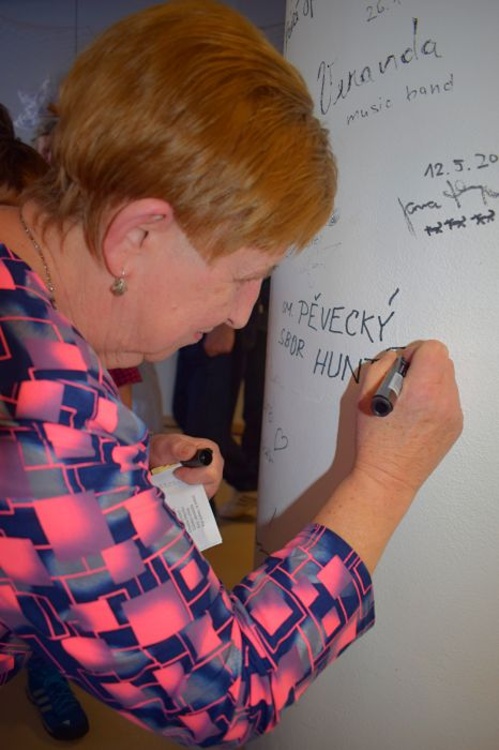 26.
Veranda
music band
12.5.20
SM. PĚVECKÝ
SBOR HUNT